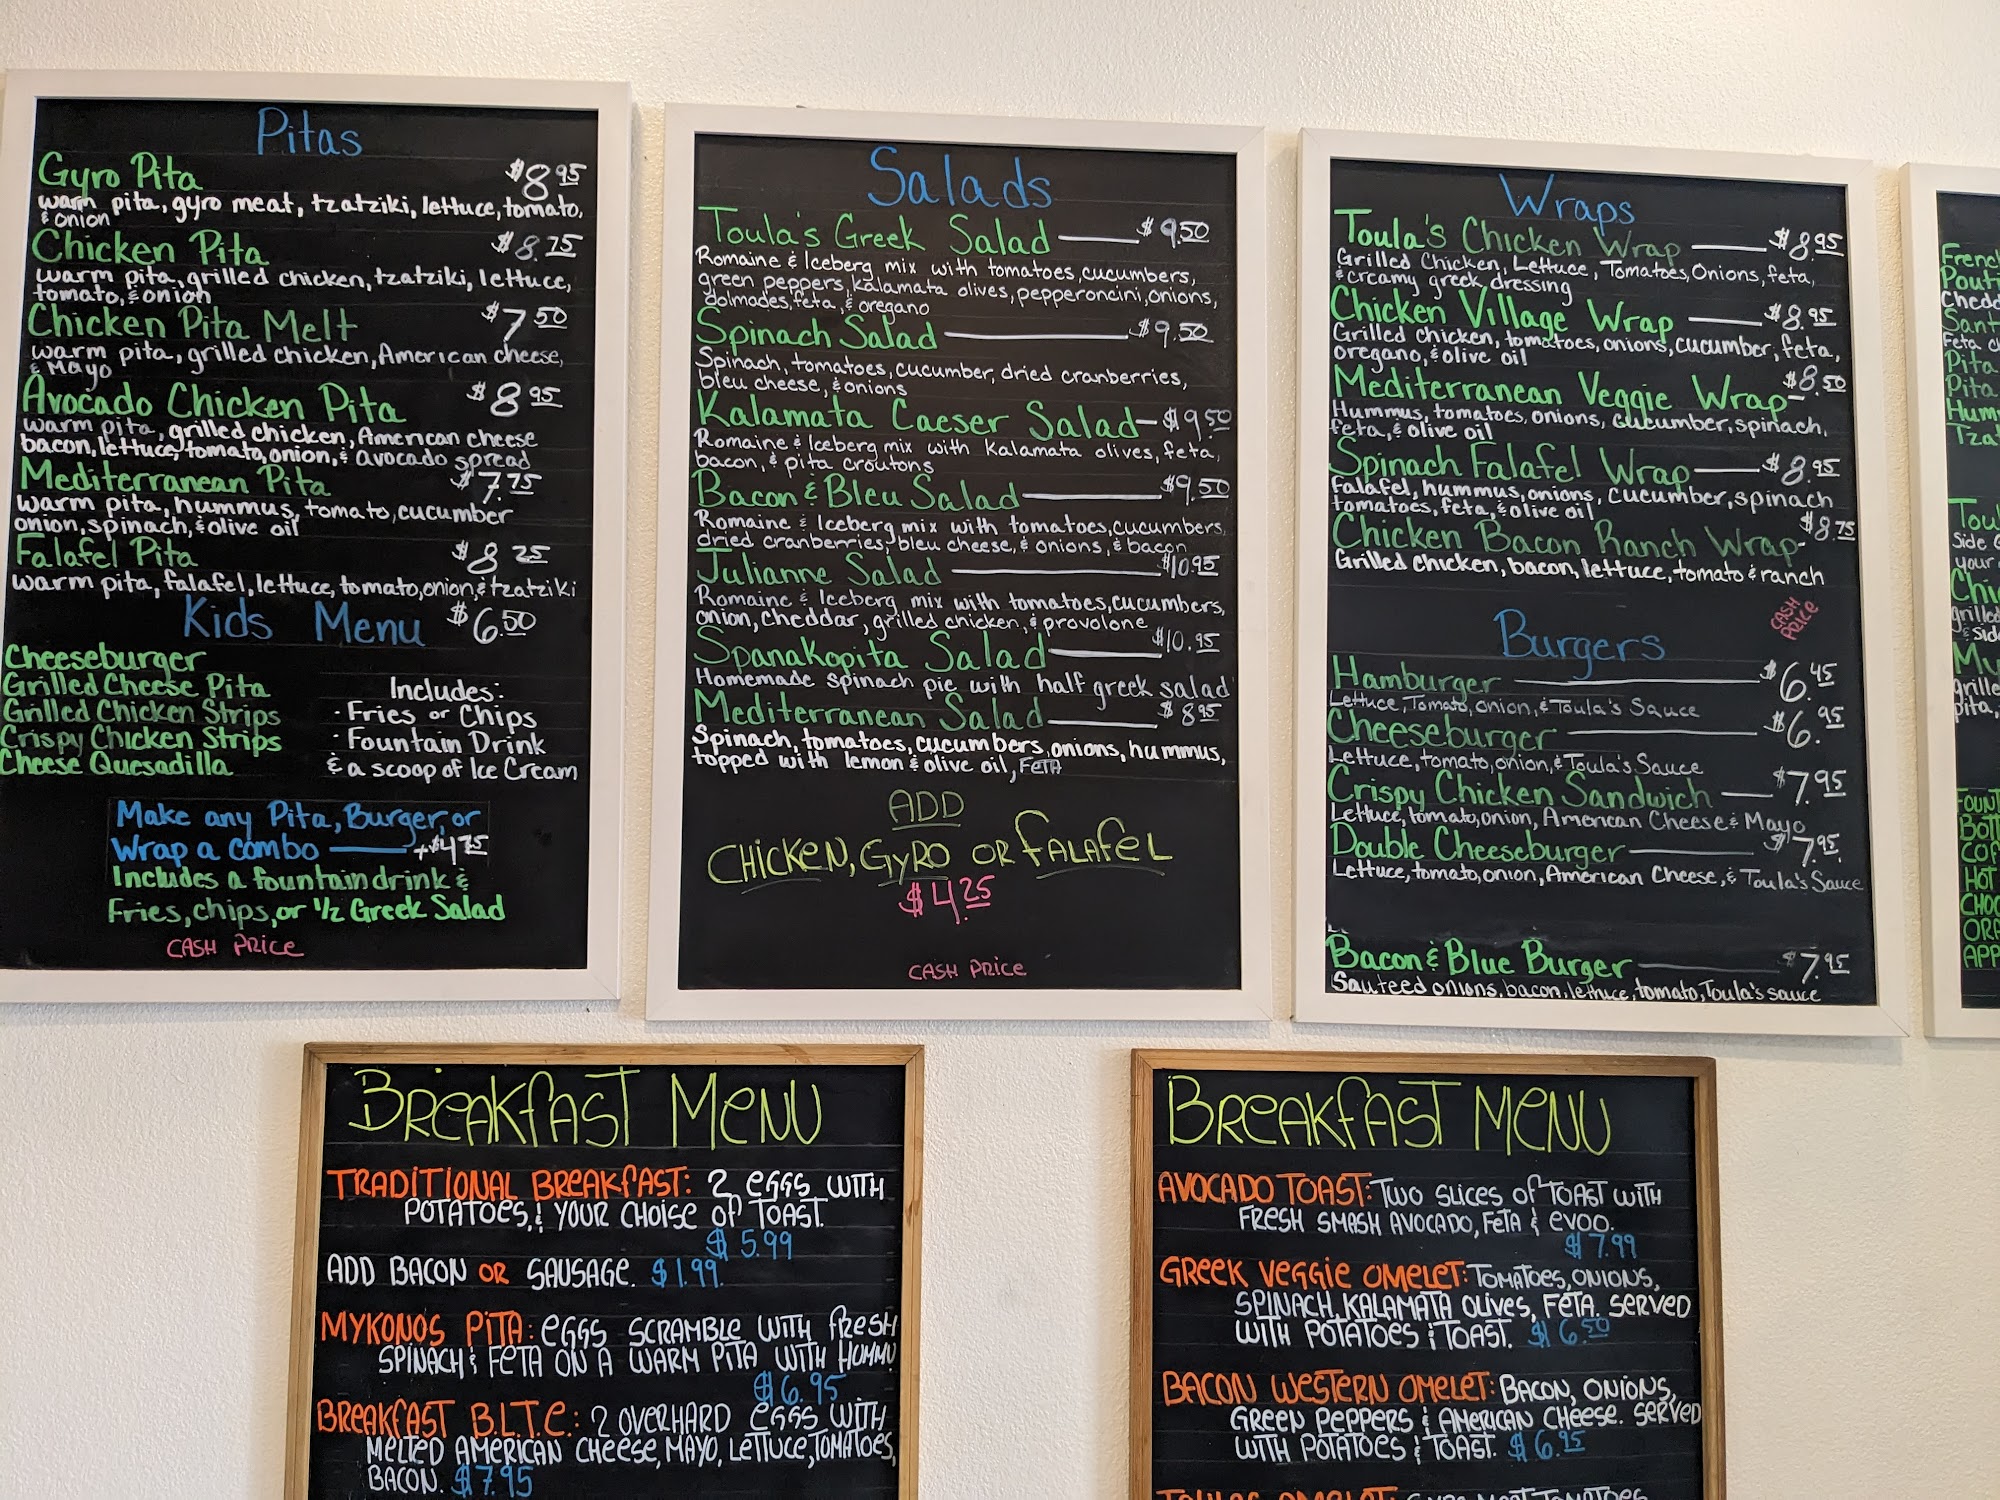 Pitas
Gyro Pita $8.95
warm pita, gyro meat, tzatziki, lettuce, tomato,
& onion
Chicken Pita $8.75
warm pita, grilled chicken, tzatziki, lettuce,
tomato, & onion
Chicken Pita Melt $7.50
warm pita, grilled chicken, American cheese,
& Mayo
Avocado Chicken Pita $8.95
warm pita, grilled chicken, American cheese
bacon, lettuce, tomato, onion, & avocado spread
Mediterranean Pita $7.75
warm pita, hummus, tomato, cucumber
onion, spinach, & olive oil
Falafel Pita $8.25
warm pita, falafel, lettuce, tomato, onion & tzatziki
Kids Menu $6.50
Cheeseburger
Grilled Cheese Pita
Grilled Chicken Strips
Crispy Chicken Strips
Cheese Quesadilla
Includes:
- Fries or Chips
- Fountain Drink
& a scoop of Ice Cream
Make any Pita, Burger, or
Wrap a combo +$4.75
Includes a fountain drink &
Fries, chips, or 1/2 Greek Salad
CASH PRICE
Salads
Toula's Greek Salad $9.50
Romaine & Iceberg mix with tomatoes, cucumbers,
green peppers, kalamata olives, pepperoncini, onions,
dolmades, feta, & oregano
Spinach Salad $9.50
Spinach, tomatoes, cucumber, dried cranberries,
bleu cheese, & onions
Kalamata Caeser Salad $9.50
Romaine & Iceberg mix with Kalamata olives, feta,
bacon, & pita croutons
Bacon & Bleu Salad $9.50
Romaine & Iceberg mix with tomatoes, cucumbers,
dried cranberries, bleu cheese, & onions, & bacon
Julianne Salad $10.95
Romaine & Iceberg mix with tomatoes, cucumbers,
onion, cheddar, grilled chicken, & provolone
Spanakopita Salad $10.95
Homemade spinach pie with half greek salad
Mediterranean Salad $8.95
Spinach, tomatoes, cucumbers, onions, hummus,
topped with lemon & olive oil, FETA
ADD
CHICKEN, GYRO OR FALAFEL
$4.25
CASH PRICE
Wraps
Toula's Chicken Wrap $8.95
Grilled Chicken, Lettuce, Tomatoes, Onions, feta,
& creamy greek dressing
Chicken Village Wrap $8.95
Grilled chicken, tomatoes, onions, cucumber, feta,
oregano, & olive oil
Mediterranean Veggie Wrap $8.50
Hummus, tomatoes, onions, cucumber, spinach,
feta, & olive oil
Spinach Falafel Wrap $8.95
Falafel, hummus, onions, cucumber, spinach
tomatoes, feta, & olive oil
Chicken Bacon Ranch Wrap $8.75
Grilled chicken, bacon, lettuce, tomato & ranch
CASH
PRICE
Burgers
Hamburger $6.45
Lettuce, Tomato, onion, & Toula's Sauce
Cheeseburger $6.95
Lettuce, tomato, onion, & Toula's Sauce
Crispy Chicken Sandwich $7.95
Lettuce, tomato, onion, American Cheese & Mayo
Double Cheeseburger $7.95
Lettuce, tomato, onion, American Cheese, & Toula's Sauce
Bacon & Blue Burger $7.95
Sauteed onions, bacon, lettuce, tomato, Toula's sauce
Pita
Pita
Side
your
& Sid
pita,
HOT
BREAKFAST MENU
TRADITIONAL BREAKFAST: 2 EGGS WITH
POTATOES, & YOUR CHOISE OF TOAST.
$5.99
ADD BACON OR SAUSAGE. $1.99.
MYKONOS PITA: EGGS SCRAMBLE WITH FRESH
SPINACH & FETA ON A WARM PITA WITH HUMMU
$6.95
BREAKFAST B.L.T.C.: 2 OVERHARD EGGS WITH
MELTED AMERICAN CHEESE, MAYO, LETTUCE, TOMATOES,
BACON. $7.95
BREAKFAST MENU
AVOCADO TOAST: TWO SLICES OF TOAST WITH
FRESH SMASH AVOCADO, FETA & EVOO.
$7.99
GREEK VEGGIE OMELET: TOMATOES, ONIONS,
SPINACH, KALAMATA OLIVES, FETA. SERVED
WITH POTATOES & TOAST. $6.50
BACON WESTERN OMELET: BACON, ONIONS,
GREEN PEPPERS & AMERICAN CHEESE. SERVED
WITH POTATOES & TOAST. $6.95